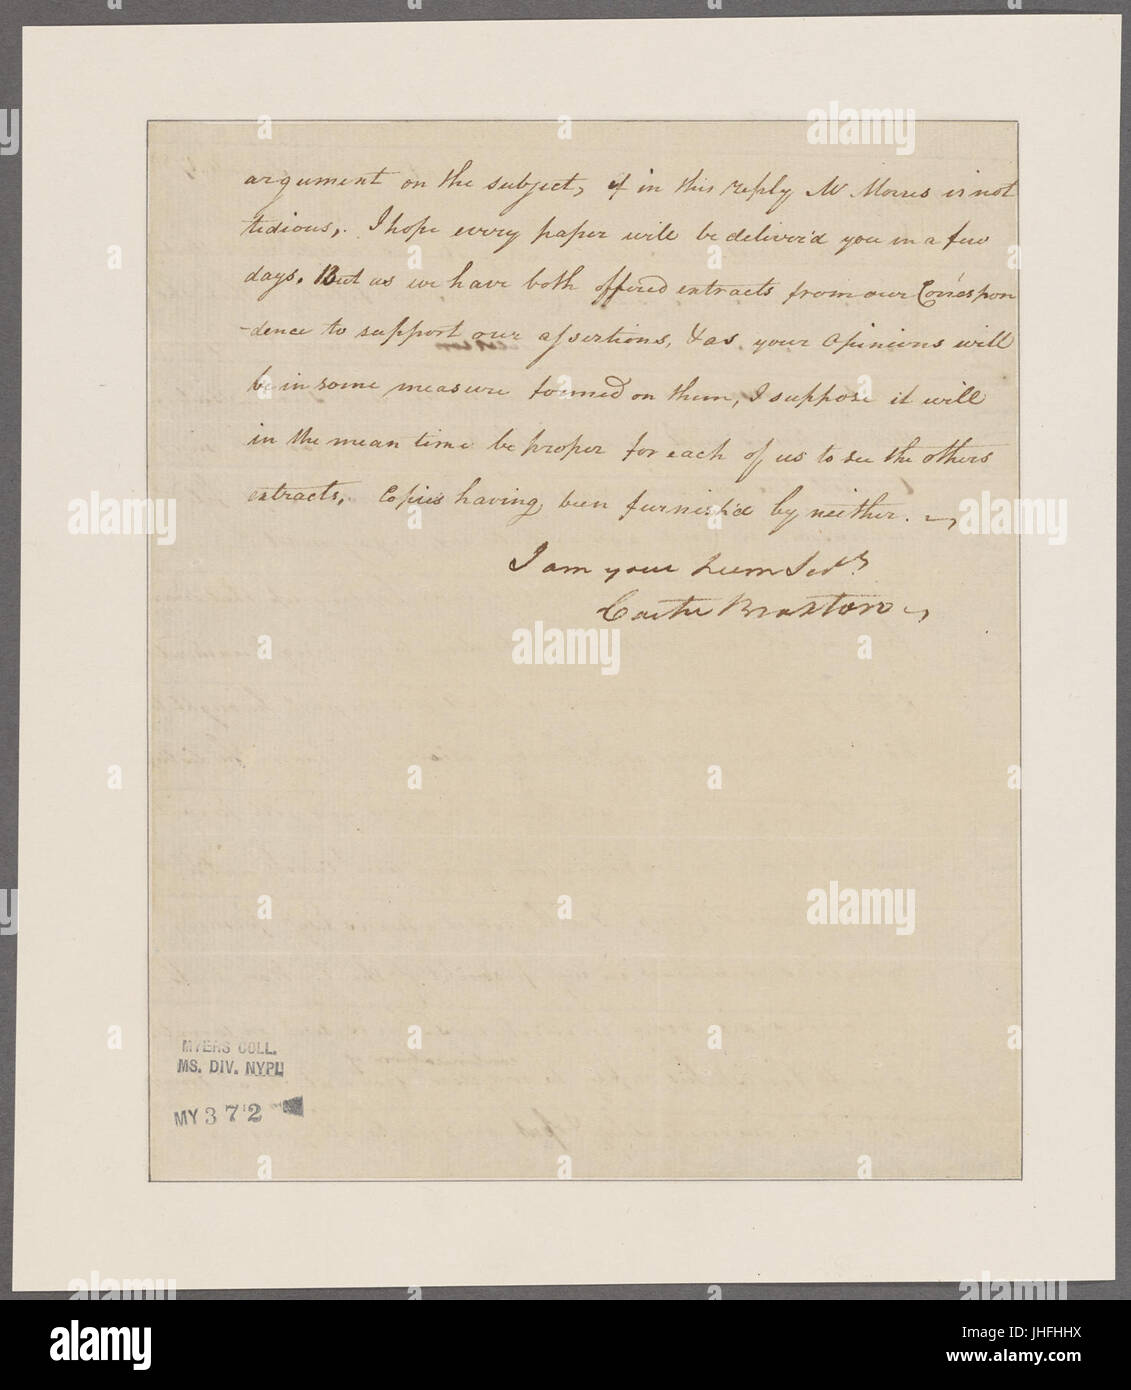 argument on the subject, if in this reply Mr Morris is not
tidious,. I hope every paper will be deliver'd you in a few
days. But as we have both offered extracts from our Correspon
-dence to support our assertions, & as your Opinions will
be in some measure formed on them, I suppose it will
in the mean time be proper for each of us to see the others
extracts, Copies having been furnish'd by neither.
I am your hum Servt.
Carter Braxton
MYERS COLL.
MS. DIV. NYPL
MY 372
alamy
Image ID: JHFHHX
www.alamy.com